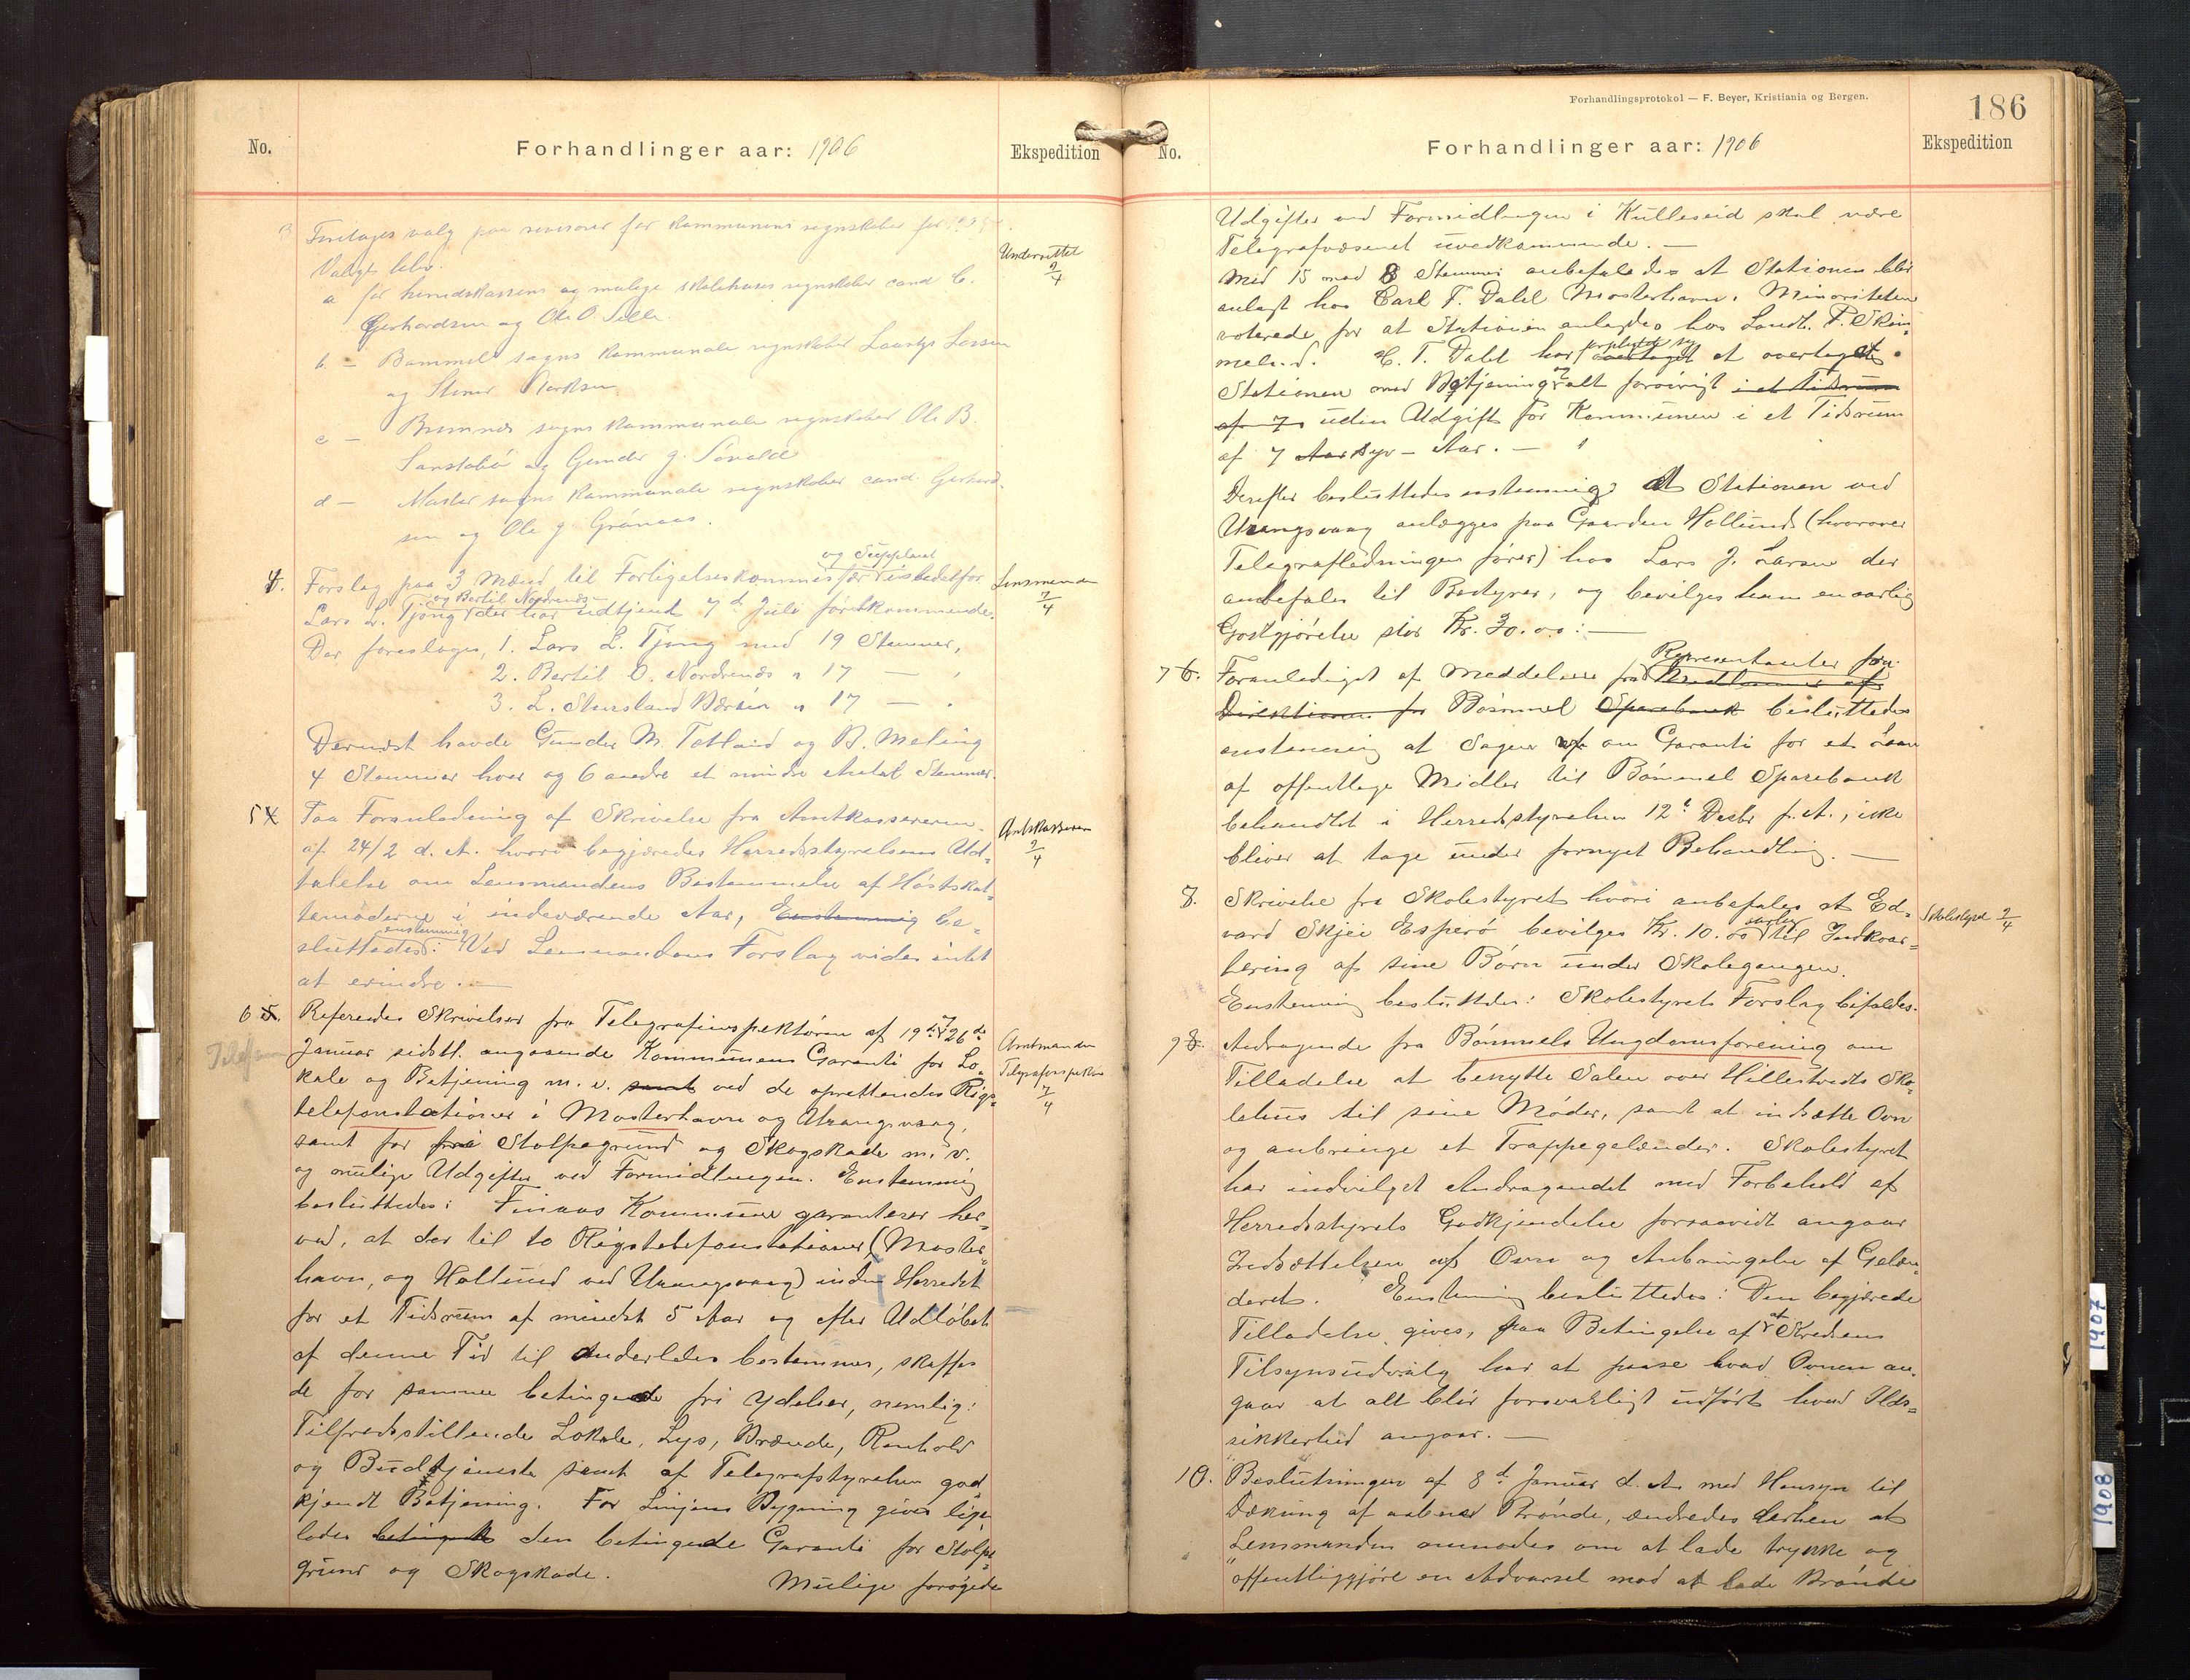 No.
Forhandlinger aar: 1906
Ekspedition
3 Foretages valg paa revisorer for kommunens regnskaber for
Valgt blev.
a for herredskassens og mulige skolekasses regnskaber cand C.
Gerhardsen og Ole O.
b – Bømmel sogns kommunale regnskaber Laurtys Larsen
og
c – Bremnes sogns kommunale regnskaber Ole B.
og Gunder J.
d – Moster sogns kommunale regnskaber cand. Gerhard-
sen og Ole J. Grönaas.
Underrettet
7/4
og Suppleant
4. Forslag paa 3 Mænd til Forligelseskommissær istedetfor
og Bertil Nordenæs
Lars L. Tjong der har udtjent 7d Juli førstkommende.
Der foreslages, 1. Lars L. Tjong med 19 Stemmer,
2. Bertil O. Nordenæs " 17 — "
3. L. Stursland Børsen " 17 — "
Dernæst havde Gunder M. Totland og B. Meling
4 Stemmer hver og 6 andre et mindre Antal Stemmer.
Lensmanden
7/4
5 4 Paa Foranledning af Skrivelse fra Amtkassereren
af 24/2 d. A. hvori begjæredes Herredsstyrelsens Ud-
talelse om Lensmandens Bestemmelse af Høstskat-
temøderne i indeværende Aar, Enstemmig be-
enstemmig
sluttedes: Ved Lensmandens Forslag vides intet
at erindre. —
Amtskasseren
7/4
6 5. Referedes Skrivelser fra Telegrafinspektøren af 19de og 26de
Januar sidstl. angaaende Kommunens Garanti for Lo-
kale og Betjening m. v. samt ved de oprettendes Rigs-
telefonstationer i Mosterhavn og Urangsvaag,
samt for fri Stolpegrund og Skogskade m. v.
og mulige Udgifter ved Formidlingen. Enstemmig
besluttedes: Finaas Kommune garanterer her-
ved, at der til to Rigstelefonstationer (Moster-
havn, og Hollund ved Urangsvaag) inden Herredet
for et Tidsrum af mindst 5 Aar og efter Udløbet
af denne Tid til anderledes bestemmes, skaffes
de for samme betingede fri Ydelser, nemlig:
Tilfredsstillende Lokale, Lys, Brænde, Renhold
og Budtjeneste samt af Telegrafstyrelsen god-
kjendt Betjening. For Linjens Bygning gives lige-
ledes betingede den betingede Garanti for Stolpe-
grund og Skogskade.
Mulige forøgede
Telefon
Amtmanden
Telegrafinspektør
7/4
Forhandlingsprotokol — F. Beyer, Kristiania og Bergen.
186
No.
Forhandlinger aar: 1906
Ekspedition
Udgifter ved Formidlingen i Kulleseid skal være
Telegrafvæsenet uvedkommende. —
Med 15 mod 8 Stemmer anbefaledes at Stationen blir
anlagt hos Carl T. Dahl Mosterhavn. Minoriteten
voterede for at Stationen anlagdes hos Landh. P. Skim-
forpligtet sig
melnd. C. T. Dahl har overtaget at overtage
Stationen med Betjening og alt forøvrigt i et Tidsrum
af 7 uden Udgift for Kommunen i et Tidsrum
af 7 Aar syv – Aar. —
Derefter besluttedes enstemmig: At Stationen ved
Urangsvaag anlægges paa Gaarden Hollund (hvorover
Telegrafledningen fører) hos Lars J. Larsen der
anbefales til Bestyrer, og bevilges ham en aarlig
Godtgjørelse stor Kr. 30.00: —
Representanter for
7 6. Foranlediget af Meddelelse fra Medlemmer af
Direktionen for Bømmel Sparebank besluttedes
enstemmig at Sagen af om Garanti for et Laan
af offentlige Midler til Bømmel Sparebank
behandlet i Herredsstyrelsen 12te Decbr f. A., ikke
bliver at tage under fornyet Behandling. —
8. Skrivelse fra Skolestyret hvori anbefales at Ed-
aarlig
vard Skjei Esperö bevilges Kr. 10.00 til Indkvar-
tering af sine Børn under Skolegangen.
Enstemmig besluttedes: Skolestyrets Forslag bifaldes.
Skolestyret 7/4
9 8. Andragende fra Bømmels Ungdomsforening om
Tilladelse at benytte Salen over Hillestvedts Sko-
lehus til sine Møder, samt at indsætte Ovn
og anbringe et Trappegelænder. Skolestyret
har indvilget Andragendet med Forbehold af
Herredsstyrets Godkjendelse forsaavidt angaar
Indsættelsen af Ovn og Anbringelse af Gelæn-
deret. Enstemmig besluttedes: Den begjærede
at
Tilladelse gives, paa Betingelse af Kredsens
Tilsynsudvalg har at paase hvad Ovnen an-
gaar at alt blir forsvarligt udført hvad Ilds-
sikkerhed angaar. —
10. Beslutningen af 8d Januar d. A. med Hensyn til
Dækning af aabne Brønde, ændredes derhen at
Lensmanden anmodes om at lade trykke og
offentliggjøre en Advarsel mod at lade Brønde
1907
1908